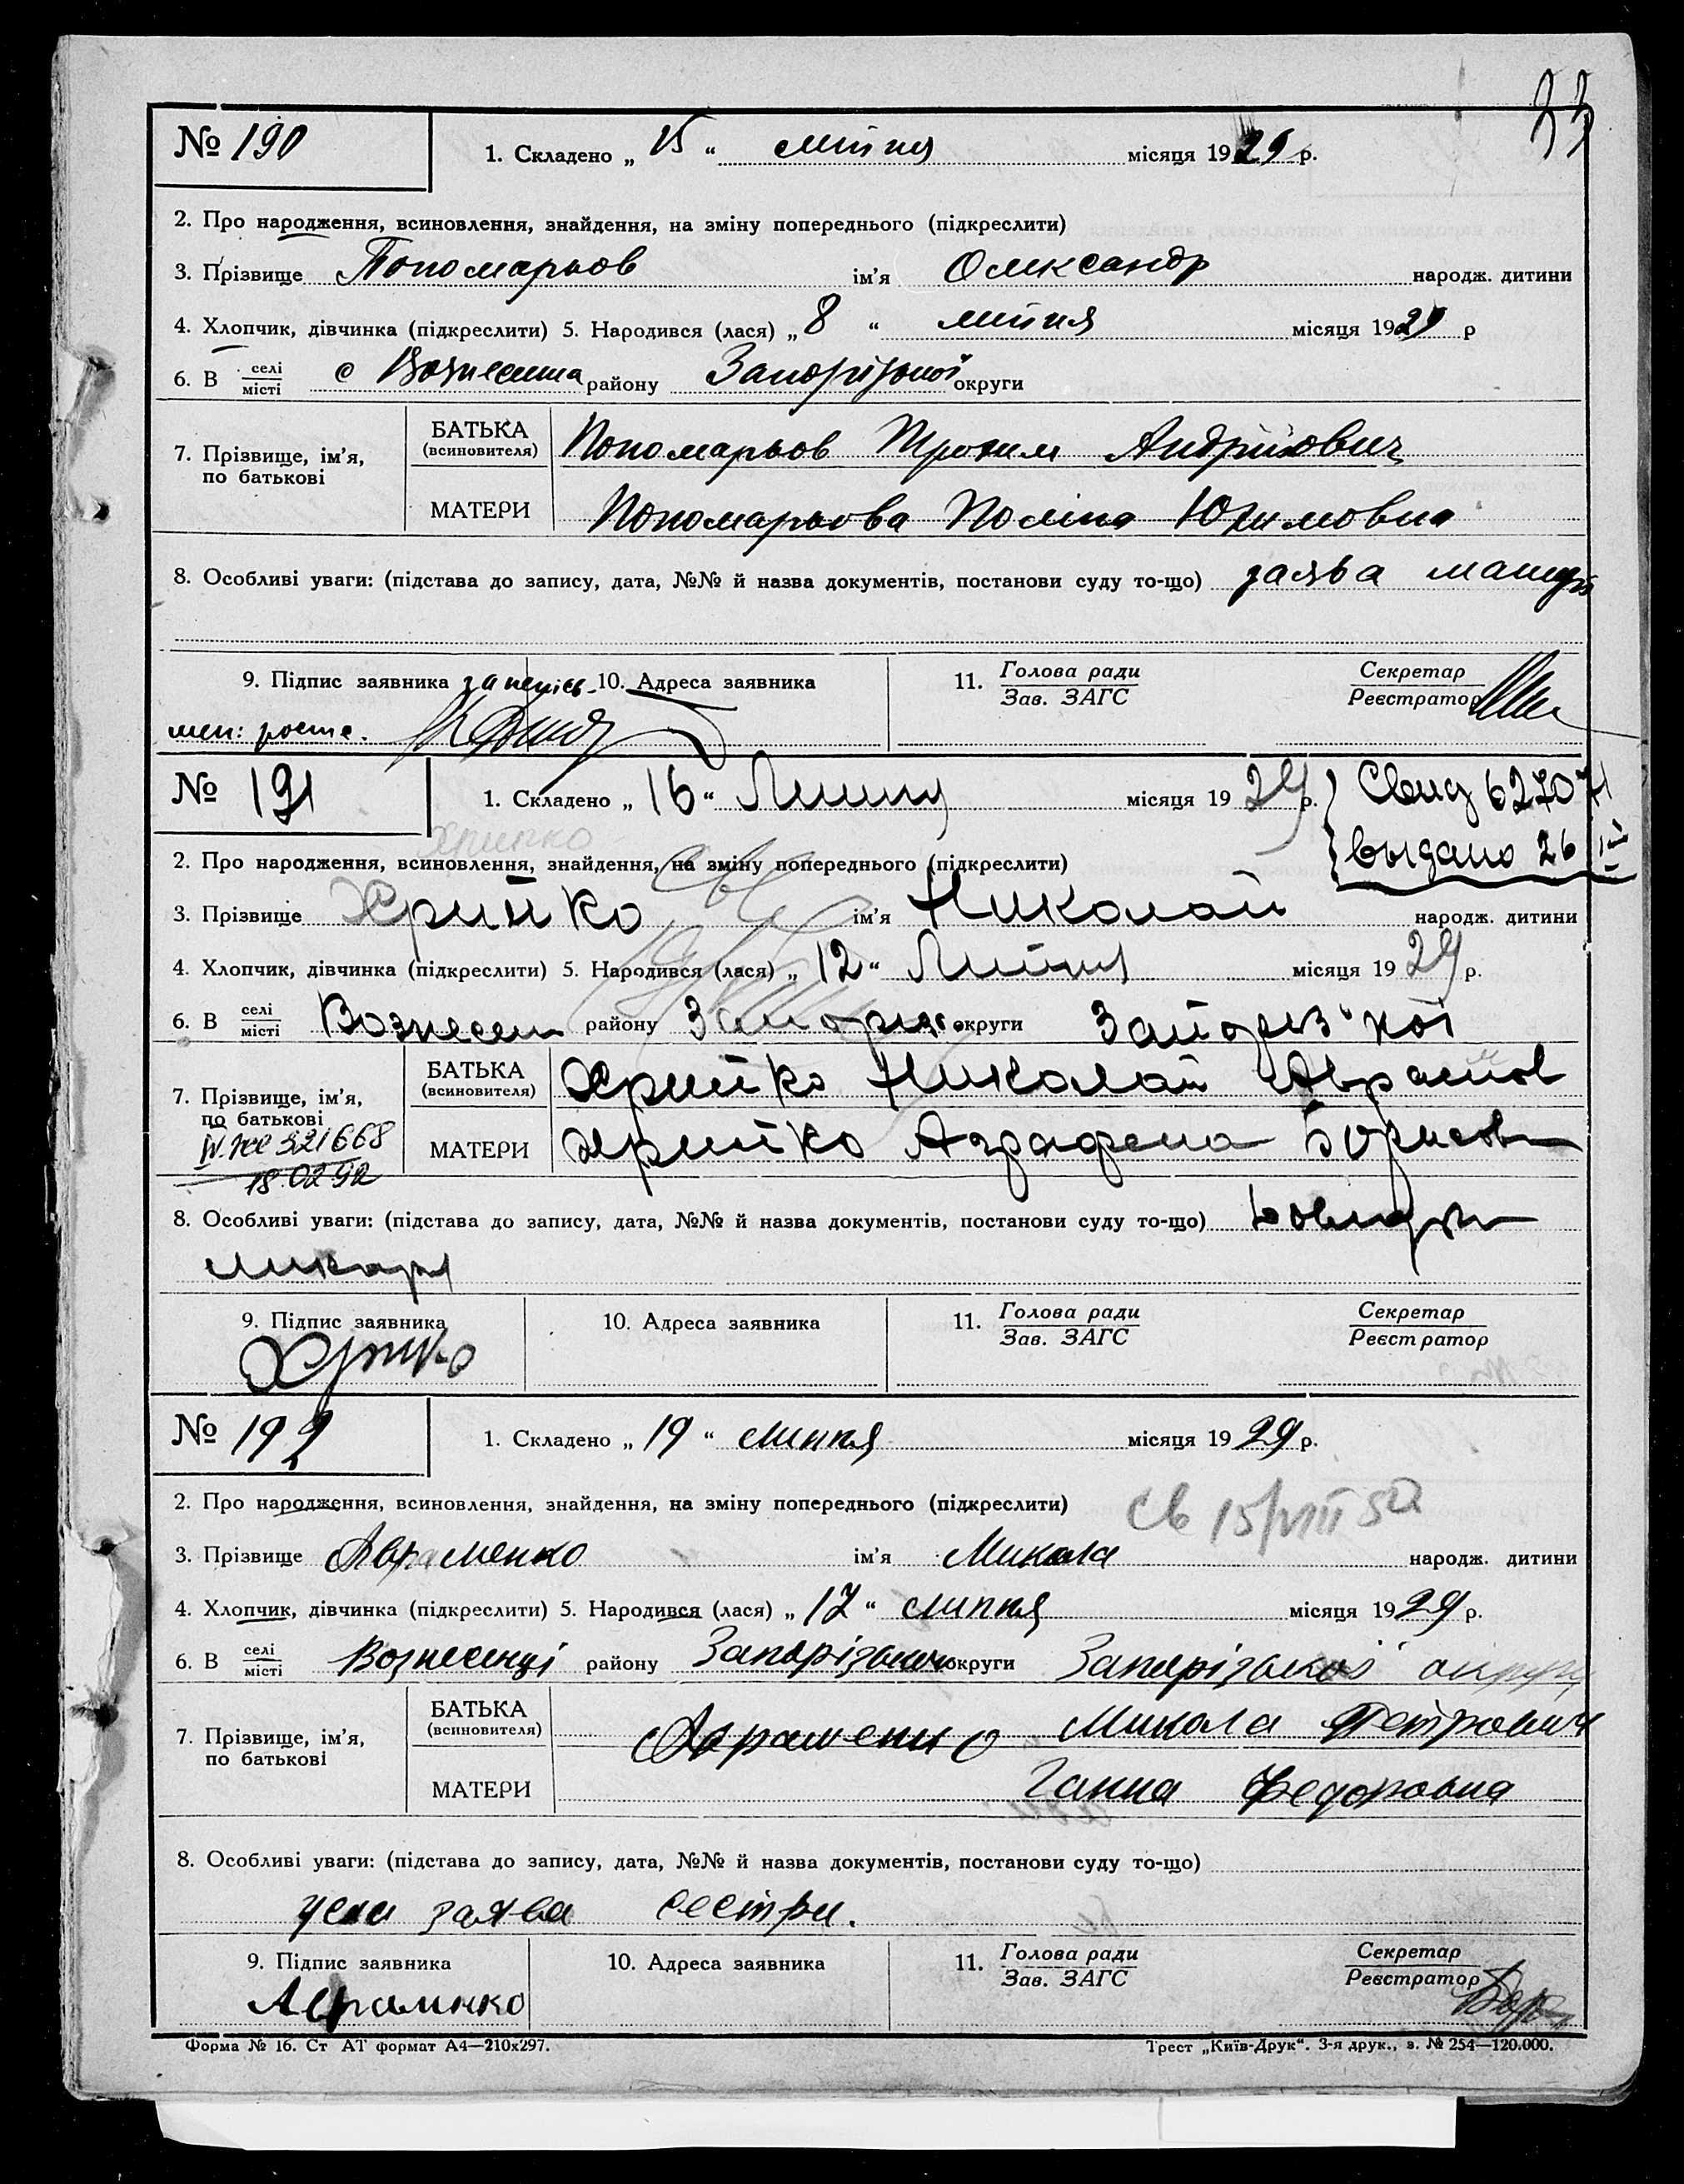 33
№ 190
1. Складено „ 15 “ липня місяця 1929 р.
2. Про народження, всиновлення, знайдення, на зміну попереднього (підкреслити)
3. Прізвище Пономарьов ім’я Олександр народж. дитини
4. Хлопчик, дівчинка (підкреслити) 5. Народився (лася) „ 8 “ липня місяця 1929 р
6. В селі/місті с Вознесенка району Запорізької округи
7. Прізвище, ім’я, по батькові
БАТЬКА (всиновителя) Пономарьов Трохим Андрійович
МАТЕРИ Пономарьова Поліна Юхимовна
8. Особливі уваги: (підстава до запису, дата, №№ й назва документів, постанови суду то-що) заява матері
9. Підпис заявника 10. Адреса заявника 11. Голова ради/Зав. ЗАГС Секретар/Реєстратор
№ 191
1. Складено „ 16 “ Липня місяця 1929 р. Свид 627071
выдано 26
Хрипко
2. Про народження, всиновлення, знайдення, на зміну попереднього (підкреслити)
3. Прізвище Хрипко ім’я Николай народж. дитини
4. Хлопчик, дівчинка (підкреслити) 5. Народився (лася) „ 12 “ Липня місяця 1929 р.
6. В селі/місті Вознесен району Запоріж округи Запоріз'кої
7. Прізвище, ім’я, по батькові
IV ЖС 321668
18.02.92
БАТЬКА (всиновителя) Хрипко Николай Аврамов
МАТЕРИ Хрипко Аграфена Борисов
8. Особливі уваги: (підстава до запису, дата, №№ й назва документів, постанови суду то-що) Довидка
ликаря
9. Підпис заявника 10. Адреса заявника 11. Голова ради/Зав. ЗАГС Секретар/Реєстратор
Хрипко
№ 192
1. Складено „ 19 “ липня місяця 1929 р.
2. Про народження, всиновлення, знайдення, на зміну попереднього (підкреслити) св 15/VIII 50
3. Прізвище Авраменко ім’я Микола народж. дитини
4. Хлопчик, дівчинка (підкреслити) 5. Народився (лася) „ 17 “ липня місяця 1929 р.
6. В селі/місті Вознесенці району Запорізького округи Запорізької округи
7. Прізвище, ім’я, по батькові
БАТЬКА (всиновителя) Авраменко Микола Петрович
МАТЕРИ Ганна Федоровна
8. Особливі уваги: (підстава до запису, дата, №№ й назва документів, постанови суду то-що)
усна заява сестри.
9. Підпис заявника 10. Адреса заявника 11. Голова ради/Зав. ЗАГС Секретар/Реєстратор
Авраменко
Форма № 16. Ст АТ формат А4—210х297. Трест „Київ-Друк“. 3-я друк., з. № 254—120.000.